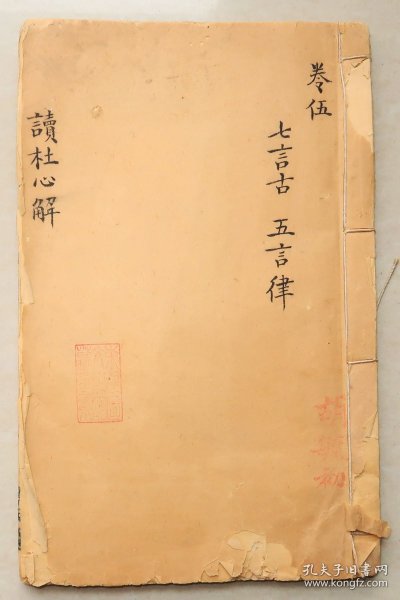 卷伍
七言古 五言律
讀杜心解
孔夫子旧书网
www.kongfz.com